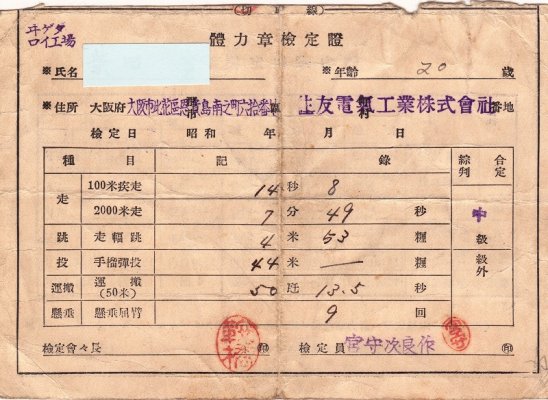 體力章檢定證
ヰゲタ
ロイ工場
※氏名 ※年齡 20 歲
※住所 大阪府 大阪市此花區恩貴島南之町六拾番地 住友電氣工業株式會社 番地
檢定日 昭和 年 月 日
種目 記錄 綜合判定
走 100米疾走 14 秒 8
2000米走 7 分 49 秒
中級
跳 走幅跳 4 米 53 糎
級外
投 手榴彈投 44 米 — 糎
運搬 運搬(50米) 50 瓩 13.5 秒
懸垂 懸垂屈臂 9 回
檢定會々長 ㊞ 檢定員 宮守次良作 ㊞